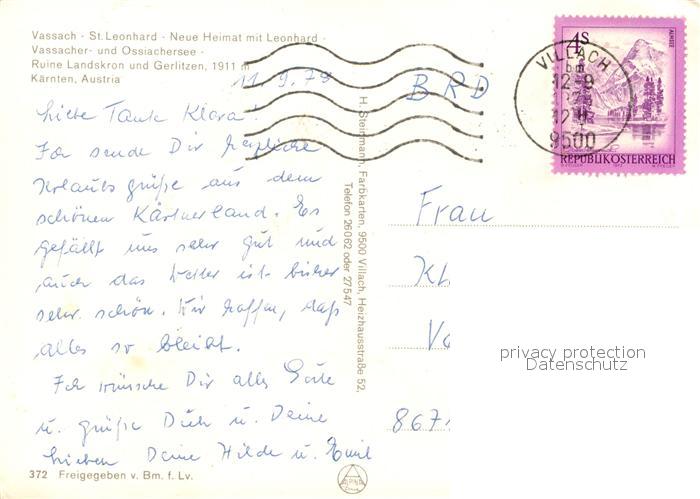 Vassach - St. Leonhard - Neue Heimat mit Leonhard -
Vassacher- und Ossiachersee -
Ruine Landskron und Gerlitzen, 1911 m
Kärnten, Austria
11.9.79
Liebe Tante Klara!
Ich sende Dir herzliche
Urlaubsgrüße aus dem
schönen Kärtnerland. Es
gefällt uns sehr gut und
auch das Wetter ist bisher
sehr schön. Wir hoffen, daß
alles so bleibt.
Ich wünsche Dir alles Gute
u. grüße Dich u. Deine
Lieben Deine Hilde u. Emil
372 Freigegeben v. Bm. f. Lv.
H. Steinmann, Farbkarten, 9500 Villach, Heizhausstraße 52,
Telefon 26062 oder 27547
ALPINA
BRD
VILLACH
12-9
9500
4S
ALMSEE
REPUBLIK ÖSTERREICH
Frau
Kl
Vo
867
privacy protection
Datenschutz